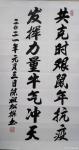 共克时艰鼠年抗疫
发挥力量牛气冲天
二〇二一年元月三日